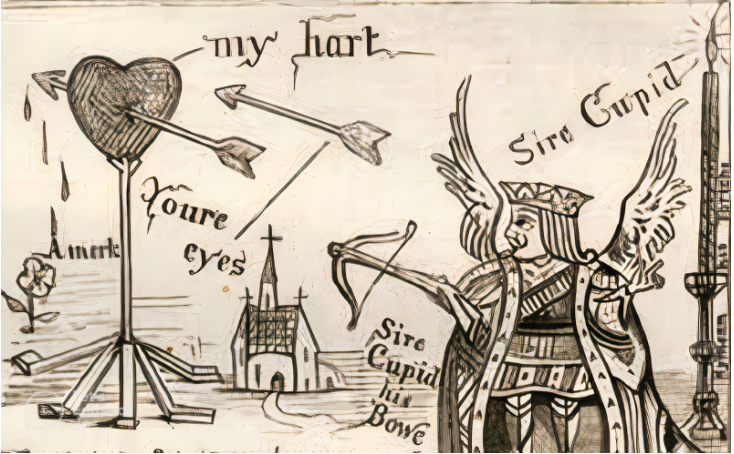 my hart
Sire Cupid
Youre
eyes
A merk
Sire
Cupid
his
Bowe